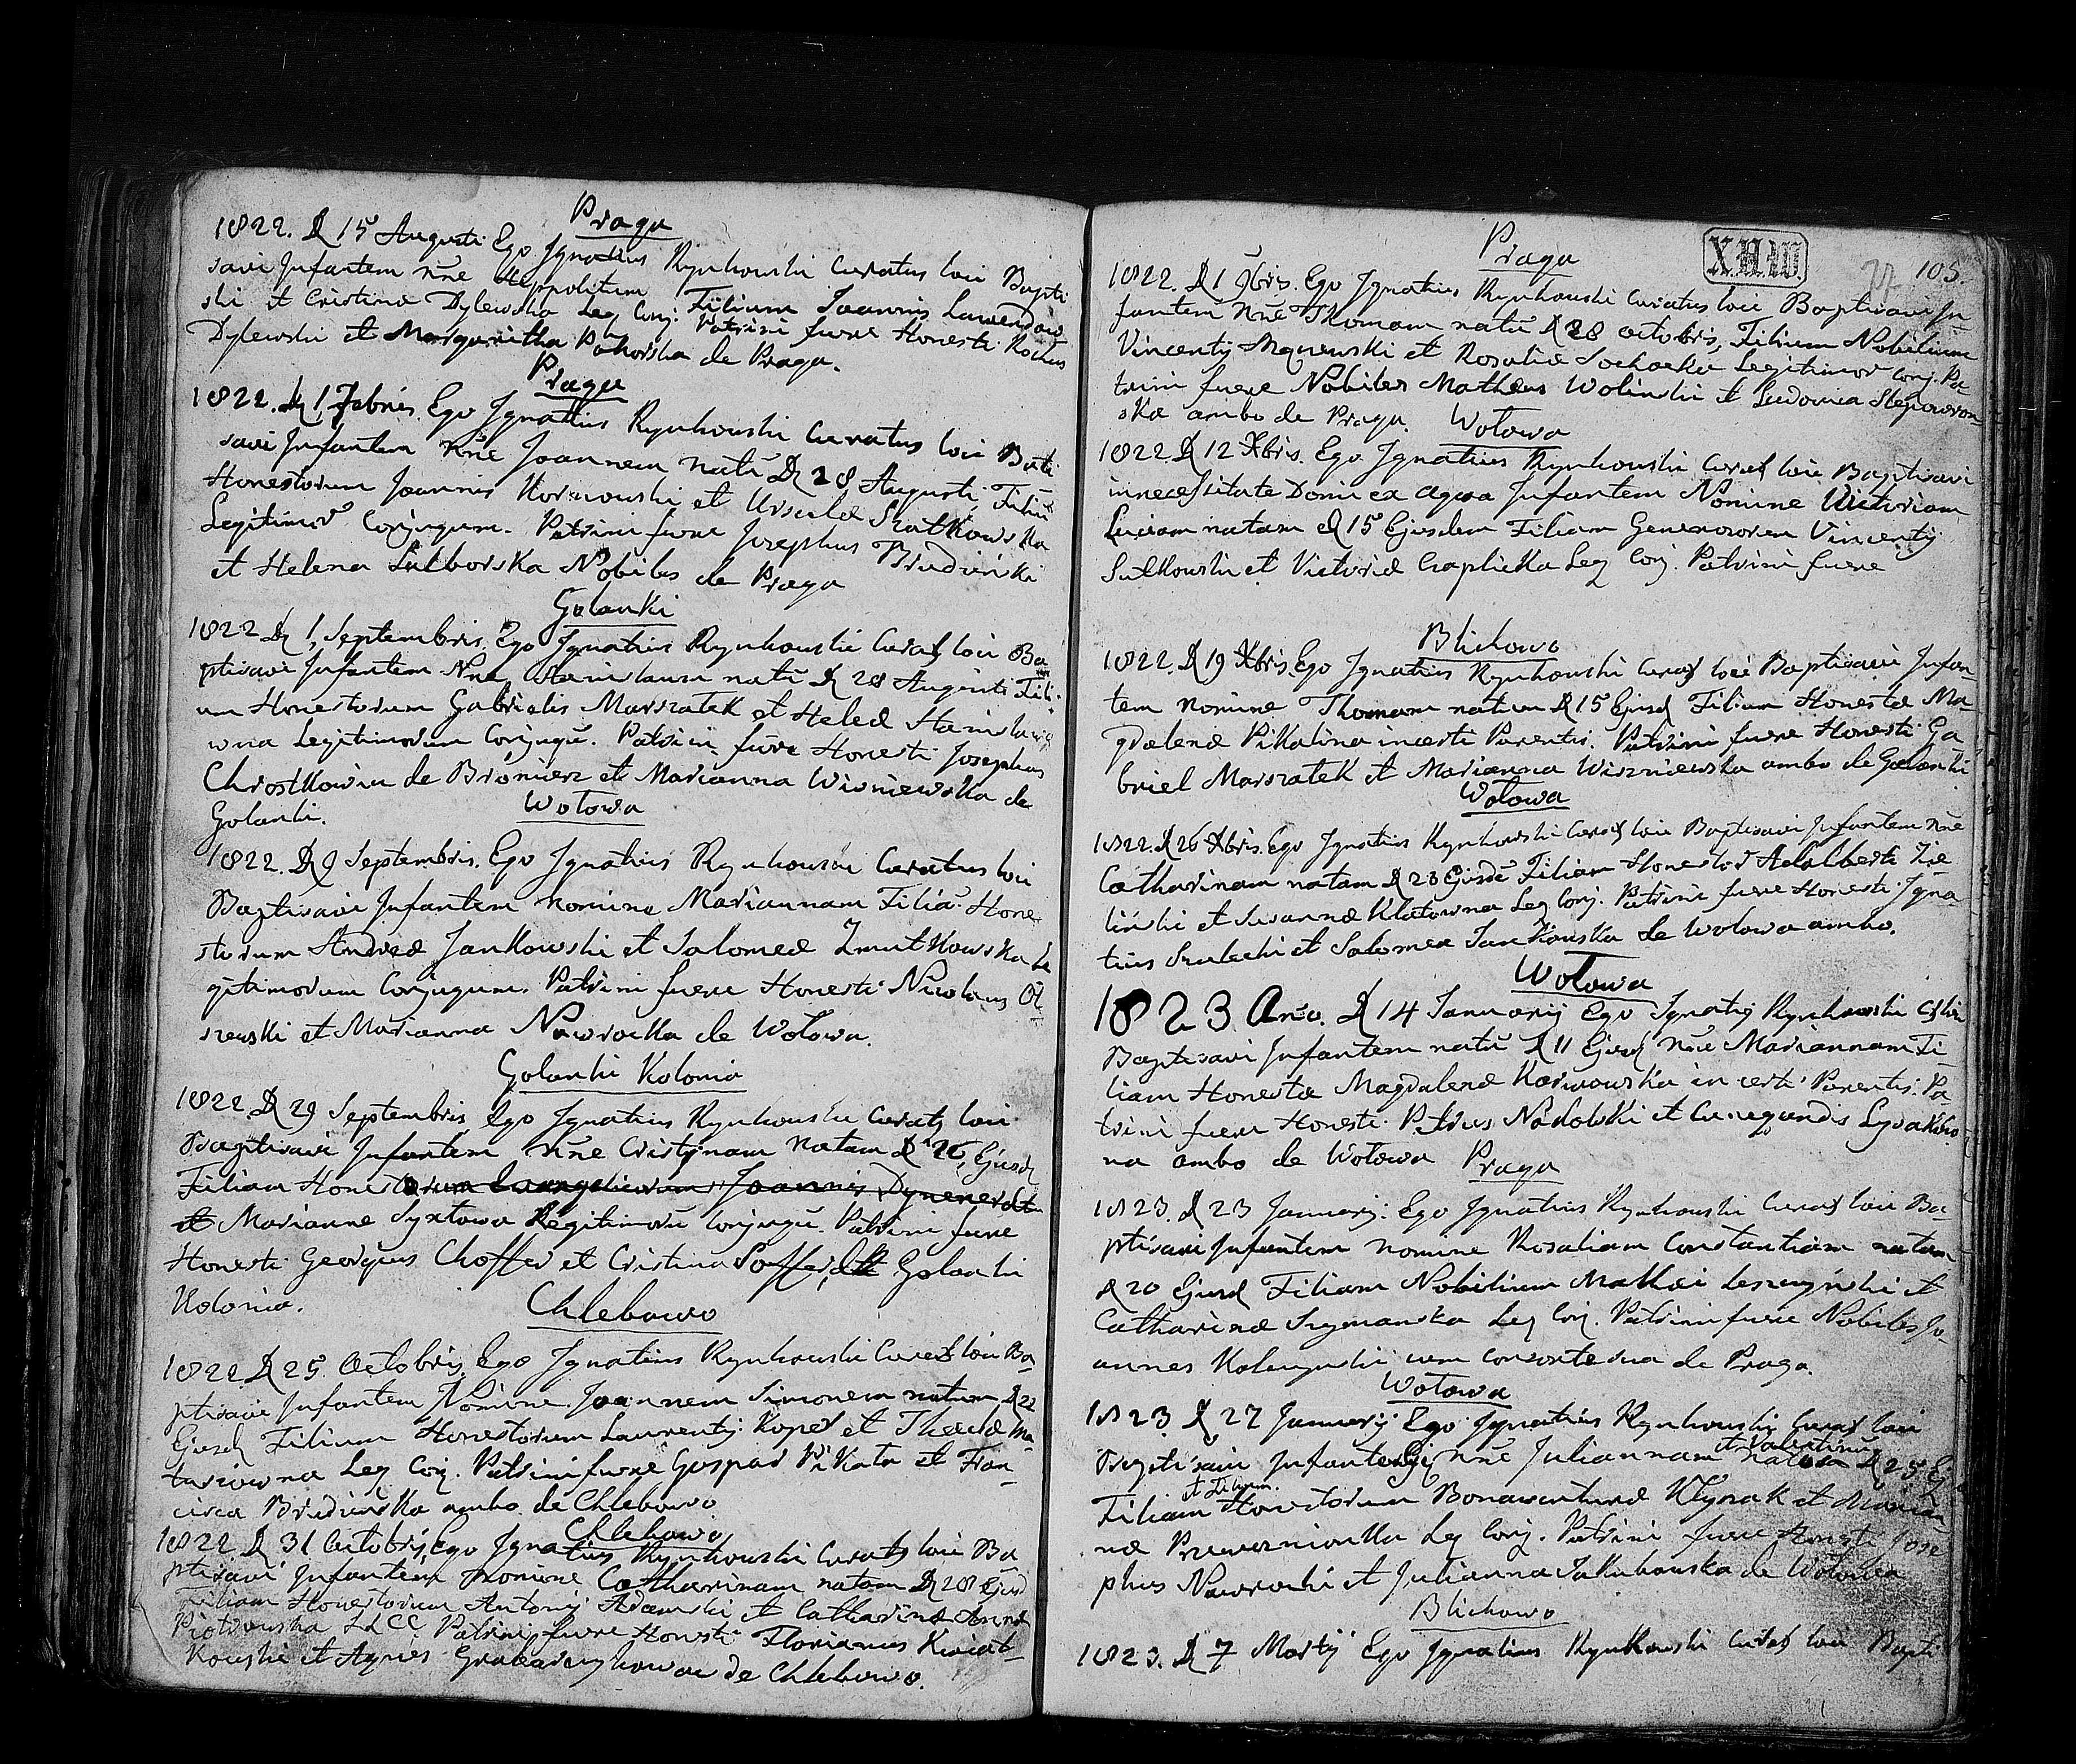 Praga
1822. D 15 Augusti Ego Ignatius Rynkowski Curatus loci Bapti
savi Infantem nne Hyppolitum Filium Joannis Lawendow
ski et Cristinae Dylewska Leg Conj: Patrini fuere Honesti Rochus
Dylewski et Margaritha Pokorska de Praga.
Praga
1822. D 1 7bris. Ego Ignatius Rynkowski Curatus loci Bati
savi Infantem nne Joannem natu D 28 Augusti, Filiu
Honestorum Joannis Karwowski et Ursulae Szatkowska
Legitimor Conjugum. Patrini fuere Josephus Brudzinski
et Helena Sulborska Nobiles de Praga
Golanki
1822 D 1, Septembris. Ego Ignatius Rynkowski Curat loci Ba
ptisavi Infantem Nne Stanislaum natu D 28 Augusti Fili
um Honestorum Gabrielis Marszałek et Heled Stanisław
wna Legitimorum Conjugu. Patrini fuere Honesti Josephus
Chrostkowicz de Bromierz et Marianna Wisniewska de
Golanki.
Wołowa
1822. D 9 Septembris. Ego Ignatius Rynkowski Curatus loci
Baptisavi Infantem nomine Mariannam Filia Hone
storum Andreae Jankowski et Salomeae Zmutkowska Le
gitimorum Conjugum. Patrini fuere Honesti Nicolaus Ol
szewski et Marianna Nawrocka de Wołowa.
Golanki Kolonia
1822. D 29 Septembris, Ego Ignatius Rynkowski Curats loci
Baptisavi Infantem nne Cristynam Natam D 26, Ejusd
Filiam Honestorum Evangelicorum Joannis
et Marianne Syxtowa Legitimoru Conjugu. Patrini fuere
Honesti Georgius Choffer et Cristina Golanki
Kolonia.
Chlebowo
1822 D 25. Octobris, Ego Ignatius Rynkowski Curats loci Ba
ptisavi Infantem Nomine Joannem Simonem natum, D 22
Ejusd Filium Honestorum Laurentij Koper et Theclae Ma
Leg Conj. Patrini fuere Gaspar Pikata et Fran
cisca Brudzinska ambo de Chlebowo
Chlebowo
1822 D 31 Octobris, Ego Ignatius Rynkowski Curats loci Ba
ptisavi Infantem nomine Catharinam natam D 28 Ejusd
Filiam Honestorum Antonij Adamski et Catharinae Anna
Piotrowska LLCC Patrini fuere Honesti Florianus Kwiat
kowski et Agnes de Chlebowo.
X.H.W.
105.
Praga
1822. D 1 9bris. Ego Ignatius Rynkowski Curatus loci Baptisavi In
fantem Nne Thomam natu D 28 Octobris, Filium Nobilium
Vincentij et Rosaliae Sochacka Legitimor Conj. Pa
trini fuere Nobiles Matheus Wolinski et Ludovica Slepowron
ska ambo de Praga.
Wołowa
1822. D 12 Xbris. Ego Ignatius Rynkowski Curat loci Baptisavi
in necessitate Domi ex aqua Infantem Nomine Victoriam
Luciam natam D 15 Ejusdem Filiam Generosorum Vincentij
Sulkowski et Victoriae Czaplicka Leg Conj. Patrini fuere
Blichowo
1822. D 19 Xbris. Ego Ignatius Rynkowski Curat loci Baptisavi Infan
tem nomine Thomam natum D 15 Ejusd Filium Honestae Ma
gdalenae Pikalina incerti Parentis. Patrini fuere Honesti Ga
briel Marszałek et Marianna Wiszniewska ambo de Golanki
Wołowa
1822. D 26 Xbris. Ego Ignatius Rynkowski Curat loci Baptisavi Infantem nne
Catharinam natam D 23 Ejusde Filiam Honestor Adalberti Zie
linski et Susannae Klatowna Leg Conj. Patrini fuere Honesti Igna
tius et Salomea Jankowska de Wołowa ambo.
Wołowa
1823 Anno. D 14 Januarij Ego Ignatij Rynkowski Cs loci
Baptisavi Infantem natu D 11 Ejusd Nne Mariannam Fi
liam Honestae Magdalenae Karwowska incerti Parentis. Pa
trini fuere Honesti Petrus Nadolski et Cunegundis
na ambo de Wołowa
Praga
1823. D 23 Januarij: Ego Ignatius Rynkowski Curat loci Ba
ptisavi Infantem nomine Rosaliam Constantiam natam
D 20 Ejusd Filiam Nobilium Mathei Leszczyński et
Catharinae Szymanska Leg Conj. Patrini fuere Nobiles Jo
annes Kolczynski cum consorte sua de Praga.
Wołowa
1823 D 27 Januarij Ego Ignatius Rynkowski Curat loci
et Valentinu
Baptisavi Infantes nne Juliannam natam D 25 Ej
et Filium
Filiam Honestorum Bonaventurae et Marian
nae Leg Conj. Patrini fuere Honesti Jose
phus Nawrocki et Julianna Jakubowska de Wołowa
Blichowo
1823. D 7 Martij Ego Ignatius Rynkowski Curat loci Bapti